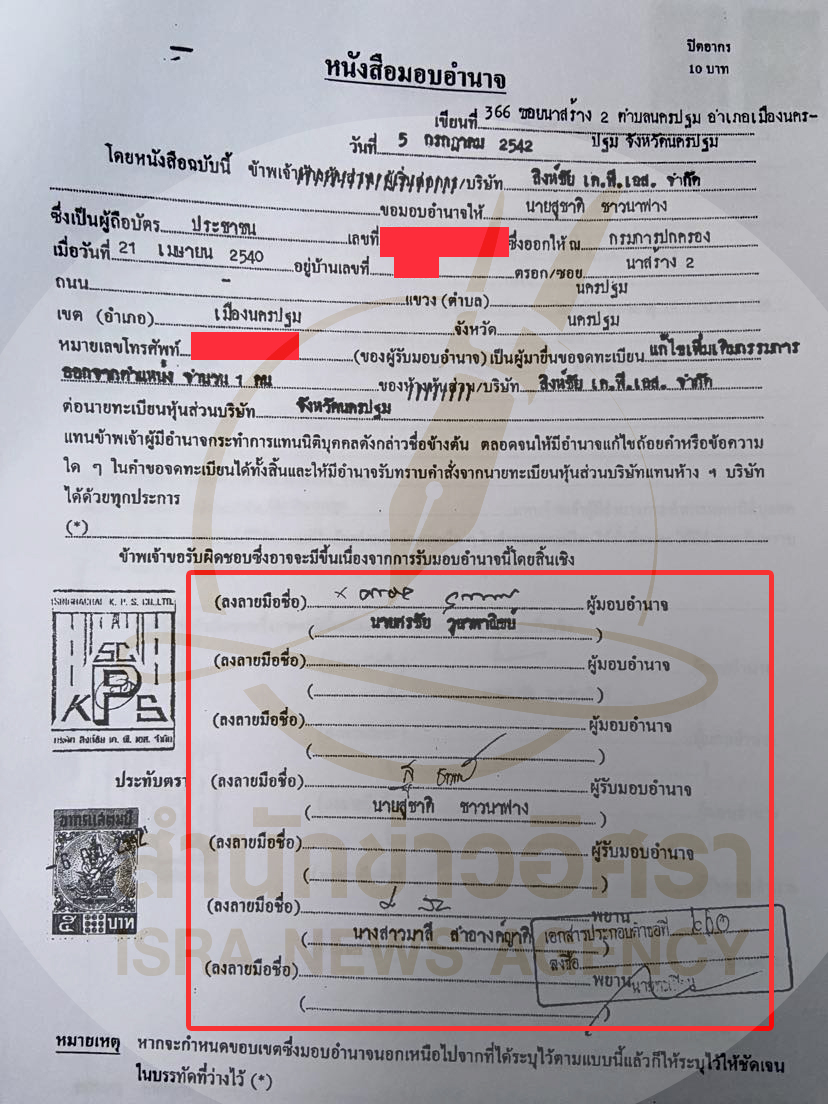 ปิดอากร
10 บาท
หนังสือมอบอำนาจ
เขียนที่ 366 ซอยนาสร้าง 2 ตำบลนครปฐม อำเภอเมืองนคร-
วันที่ 5 กรกฎาคม 2542 ปฐม จังหวัดนครปฐม
โดยหนังสือฉบับนี้ ข้าพเจ้า /บริษัท สิงห์ชัย เค.พี.เอส. จำกัด
ขอมอบอำนาจให้ นายสุชาติ ชาวนาฟาง
ซึ่งเป็นผู้ถือบัตร ประชาชน เลขที่ ซึ่งออกให้ ณ กรมการปกครอง
เมื่อวันที่ 21 เมษายน 2540 อยู่บ้านเลขที่ ตรอก/ซอย นาสร้าง 2
ถนน - แขวง (ตำบล) นครปฐม
เขต (อำเภอ) เมืองนครปฐม จังหวัด นครปฐม
หมายเลขโทรศัพท์ (ของผู้รับมอบอำนาจ) เป็นผู้มายื่นขอจดทะเบียน แก้ไขเพิ่มเติมกรรมการ
ออกจากตำแหน่ง จำนวน 1 คน ของห้างหุ้นส่วน/บริษัท สิงห์ชัย เค.พี.เอส. จำกัด
ต่อนายทะเบียนหุ้นส่วนบริษัท จังหวัดนครปฐม
แทนข้าพเจ้าผู้มีอำนาจกระทำการแทนนิติบุคคลดังกล่าวชื่อข้างต้น ตลอดจนให้มีอำนาจแก้ไขถ้อยคำหรือข้อความ
ใด ๆ ในคำขอจดทะเบียนได้ทั้งสิ้นและให้มีอำนาจรับทราบคำสั่งจากนายทะเบียนหุ้นส่วนบริษัทแทนห้าง ฯ บริษัท
ได้ด้วยทุกประการ
(*)
ข้าพเจ้าขอรับผิดชอบซึ่งอาจจะมีขึ้นเนื่องจากการรับมอบอำนาจนี้โดยสิ้นเชิง
SINGHACHAI K. P. S. CO.,LTD.
SC
KPS
บริษัท สิงห์ชัย เค. พี. เอส. จำกัด
ประทับตรา
(ลงลายมือชื่อ) ผู้มอบอำนาจ
(นายศรชัย )
(ลงลายมือชื่อ) ผู้มอบอำนาจ
( )
(ลงลายมือชื่อ) ผู้มอบอำนาจ
( )
(ลงลายมือชื่อ) ผู้รับมอบอำนาจ
(นายสุชาติ ชาวนาฟาง)
(ลงลายมือชื่อ) ผู้รับมอบอำนาจ
( )
(ลงลายมือชื่อ) พยาน
(นางสาวมาลี สำอางค์ญาติ)
(ลงลายมือชื่อ) พยาน
( )
อากรแสตมป์
๕ บาท
เอกสารประกอบคำขอที่
ลงชื่อ
นายทะเบียน
สำนักข่าวอิศรา
ISRA NEWS AGENCY
หมายเหตุ หากจะกำหนดขอบเขตซึ่งมอบอำนาจนอกเหนือไปจากที่ได้ระบุไว้ตามแบบนี้แล้วก็ให้ระบุไว้ให้ชัดเจน
ในบรรทัดที่ว่างไว้ (*)